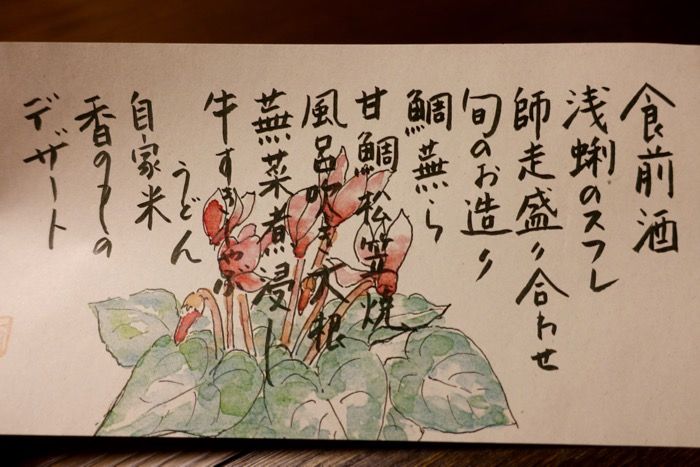 食前酒
浅蜊のスフレ
師走盛り合わせ
旬のお造り
鯛蕪ら
甘鯛松笠焼
風呂吹き大根
蕪菜煮浸し
牛すきしゃぶ
うどん
自家米
香のもの
デザート